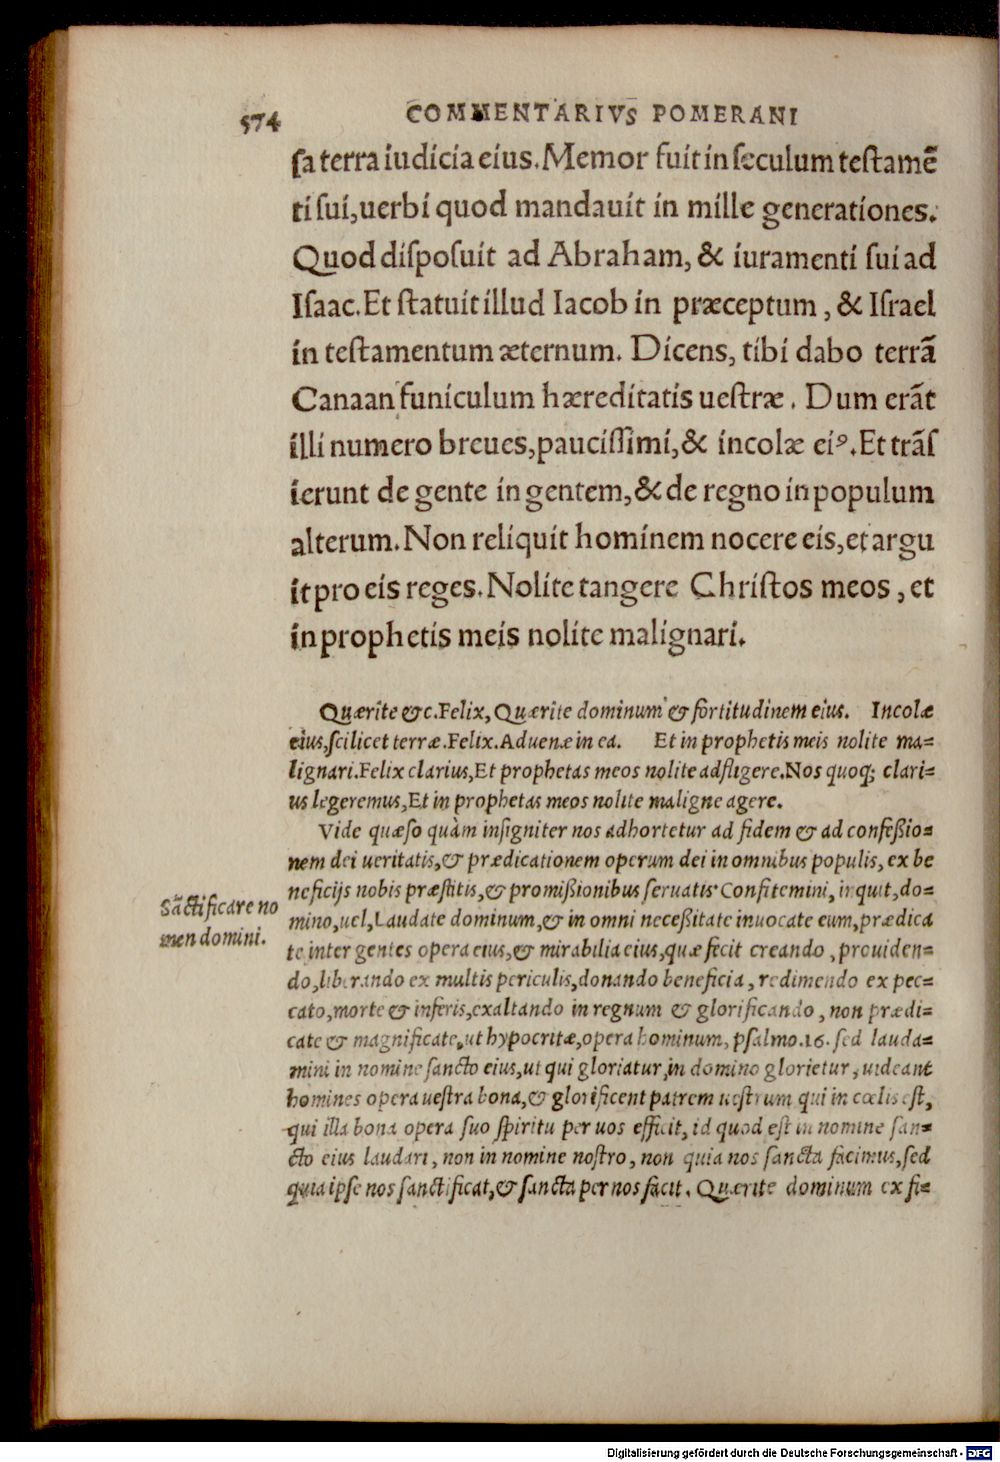 574
COMMENTARIVS POMERANI
ſa terra iudicia eius. Memor fuit in ſeculum teſtamē
ti ſui, uerbi quod mandauit in mille generationes.
Quod diſpoſuit ad Abraham, & iuramenti ſui ad
Iſaac. Et ſtatuit illud Iacob in præceptum, & Iſrael
in teſtamentum æternum. Dicens, tibi dabo terrā
Canaan funiculum hæreditatis ueſtræ. Dum erāt
illi numero breues, pauciſſimi, & incolæ eiꝰ. Et trāſ
ierunt de gente in gentem, & de regno in populum
alterum. Non reliquit hominem nocere eis, et argu
it pro eis reges. Nolite tangere Chriſtos meos, et
in prophetis meis nolite malignari.
Quærite &c. Felix, Quærite dominum & fortitudinem eius. Incolæ
eius, ſcilicet terræ. Felix. Aduenæ in ea. Et in prophetis meis nolite ma=
lignari. Felix clarius, Et prophetas meos nolite adfligere. Nos quoq; clari=
us legeremus, Et in prophetas meos nolite maligne agere.
Vide quæſo quàm inſigniter nos adhortetur ad fidem & ad confeßio=
nem dei ueritatis, & prædicationem operum dei in omnibus populis, ex be
neficijs nobis præſtitis, & promißionibus ſeruatis. Confitemini, inquit, do=
Sāctificare no
men domini.
mino, uel, Laudate dominum, & in omni neceßitate inuocate eum, prædica
te inter gentes opera eius, & mirabilia eius, quæ fecit creando, prouiden=
do, liberando ex multis periculis, donando beneficia, redimendo ex pec=
cato, morte & inferis, exaltando in regnum & glorificando, non prædi=
cate & magnificate, ut hypocritæ, opera hominum, pſalmo. 16. ſed lauda=
mini in nomine ſancto eius, ut qui gloriatur, in domino glorietur, uideant
homines opera ueſtra bona, & glorificent patrem ueſtrum qui in cœlis eſt,
qui illa bona opera ſuo ſpiritu per uos efficit, id quod eſt in nomine ſan=
cto eius laudari, non in nomine noſtro, non quia nos ſancta facimus, ſed
quia ipſe nos ſanctificat, & ſancta per nos facit. Quærite dominum ex fi=
Digitalisierung gefördert durch die Deutsche Forschungsgemeinschaft - DFG